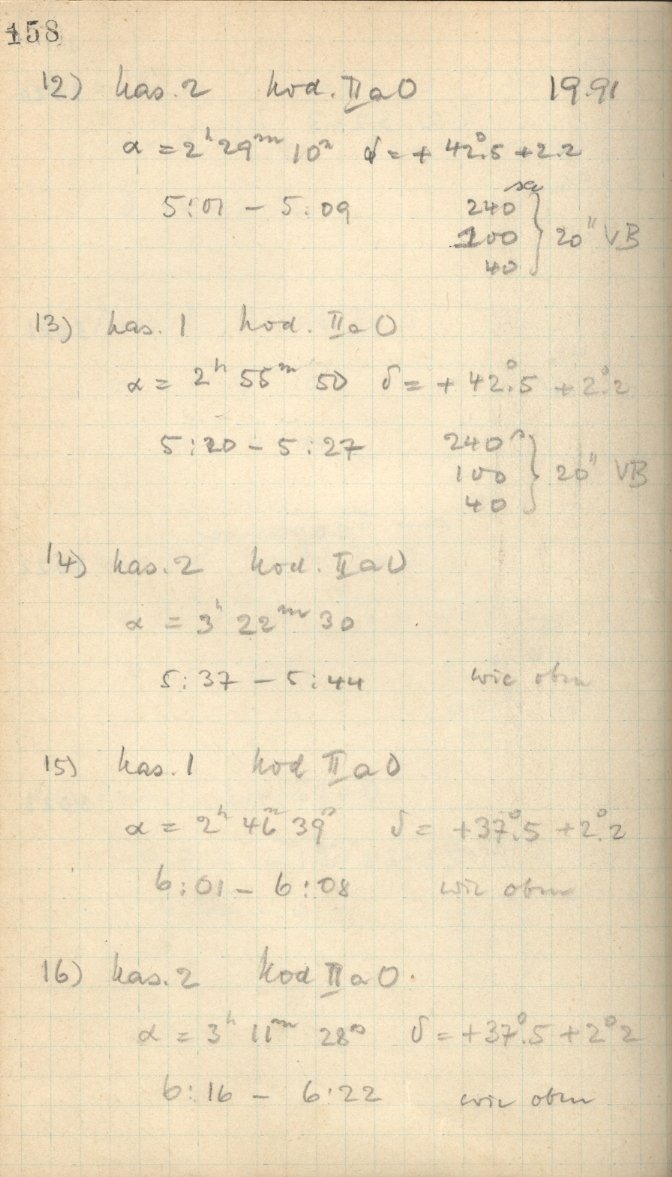 158
12) Kas. 2 Kod. IIaO 19.91
α = 2ʰ 29ᵐ 10ˢ δ = + 42°.5 + 2.2
5:01 - 5:09 240 } 20" VB
100
40
13) Kas. 1 Kod. IIaO
α = 2ʰ 55ᵐ 50 δ = + 42°.5 + 2°.2
5:20 - 5:27 240ˢ } 20" VB
100
40
14) Kas. 2 Kod. IIaO
α = 3ʰ 22ᵐ 30
5:37 - 5:44 wie oben
15) Kas. 1 Kod IIaO
α = 2ʰ 46ᵐ 39ˢ δ = +37°.5 + 2°.2
6:01 - 6:08 wie oben
16) Kas. 2 Kod IIaO.
α = 3ʰ 11ᵐ 28ˢ δ = +37°.5 + 2°2
6:16 - 6:22 wie oben